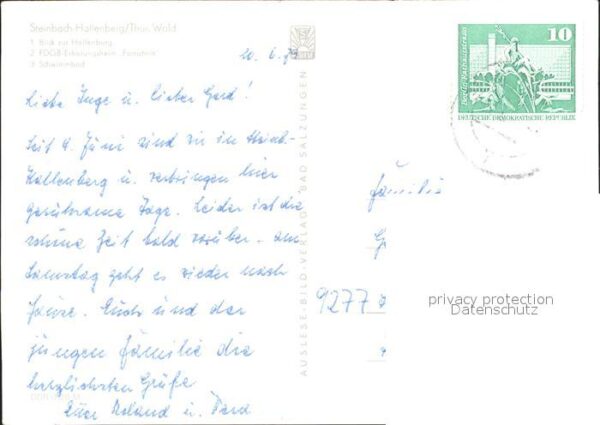 Steinbach-Hallenberg/Thür. Wald
1 Blick zur Hallenburg
2 FDGB-Erholungsheim „Fortschritt“
3 Schwimmbad
20. 6. 79
Liebe Inge u. lieber Gerd!
Seit 9. Juni sind wir in Steinb.-
Hallenberg u. verbringen hier
geruhsame Tage. Leider ist die
schöne Zeit bald vorüber - am
Samstag geht es wieder nach
Hause. Euch und der
jungen Familie die
herzlichsten Grüße
Eure Roland u.
AUSLESE-BILD-VERLAG · BAD SALZUNGEN
10
Berlin, Rathausstrasse
DEUTSCHE DEMOKRATISCHE REPUBLIK
Familie
G
9277
privacy protection
Datenschutz